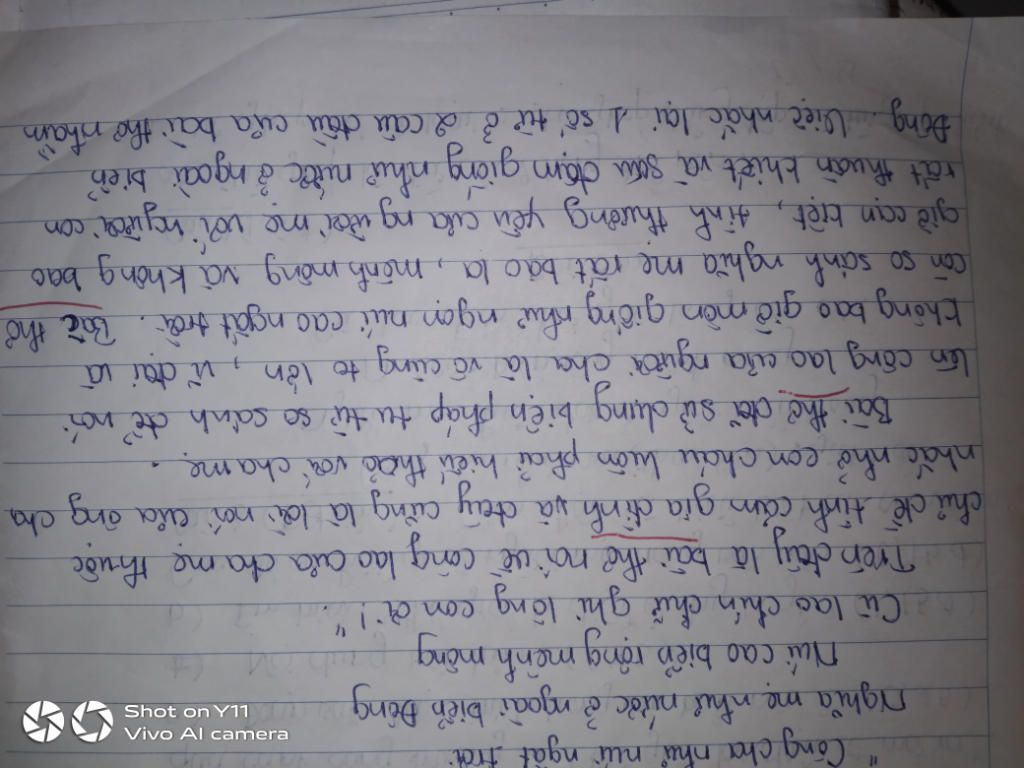 "Công cha như núi ngất trời
Nghĩa mẹ như nước ở ngoài biển Đông
Núi cao biển rộng mênh mông
Cù lao chín chữ ghi lòng con ơi!"
Trên đây là bài thơ nói về công lao của cha mẹ thuộc
chủ đề tình cảm gia đình và đây cũng là lời nói của ông cha
nhắc nhở con cháu luôn phải hiếu thảo với cha mẹ.
Bài thơ đã sử dụng biện pháp tu từ so sánh để nói
lên công lao của người cha là vô cùng to lớn, vĩ đại và
không bao giờ mòn giống như ngọn núi cao ngất trời. Bài thơ
còn so sánh nghĩa mẹ rất bao la, mênh mông và không bao
giờ cạn kiệt, tình thương yêu của người mẹ với người con
rất thuần khiết và sâu đậm giống như nước ở ngoài biển
Đông. Việc nhắc lại 1 số từ ở 2 câu đầu của bài thơ nhằm
Shot on Y11
Vivo AI camera